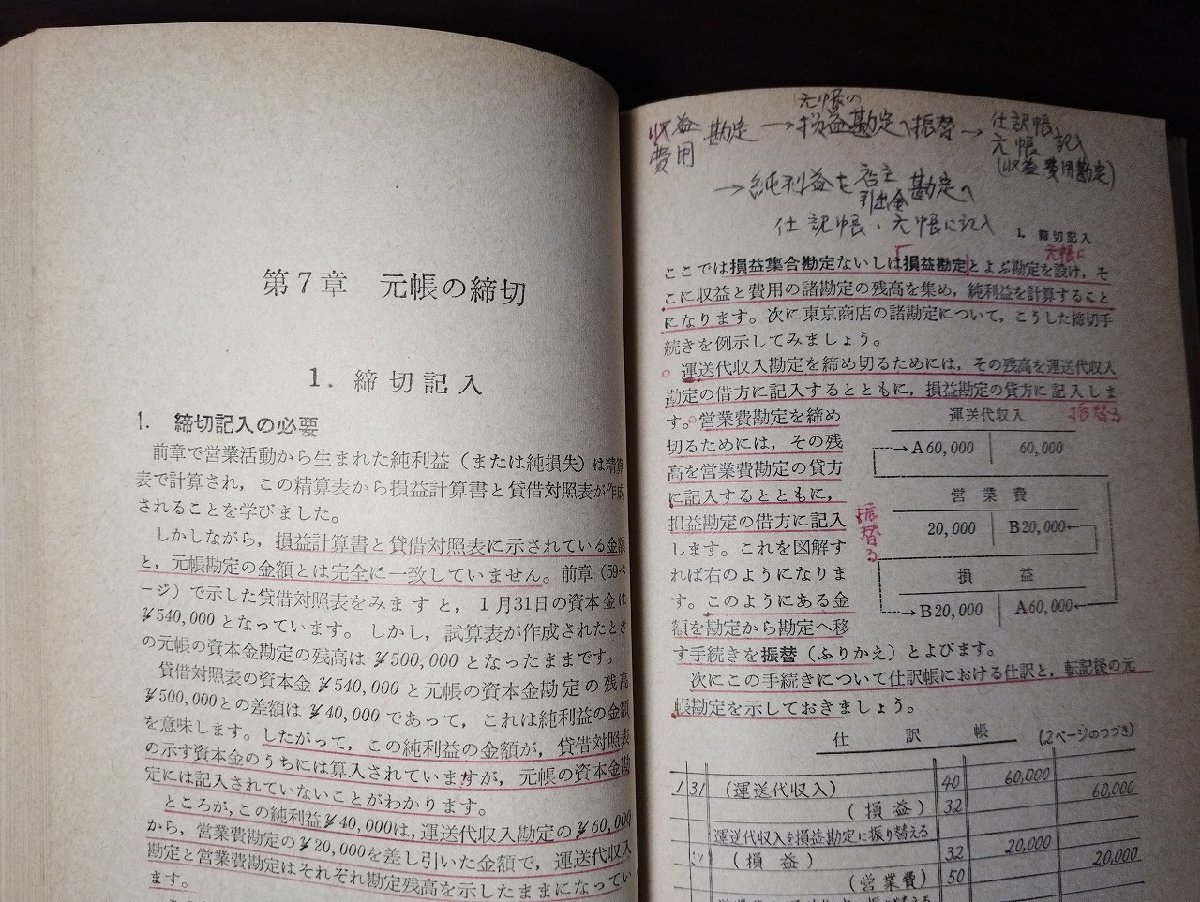 第7章 元帳の締切
1. 締切記入
1. 締切記入の必要
前章で営業活動から生まれた純利益(または純損失)は精算
表で計算され,この精算表から損益計算書と貸借対照表が作成
されることを学びました。
しかしながら,損益計算書と貸借対照表に示されている金額
と,元帳勘定の金額とは完全に一致していません。前章(59ペ
ージ)で示した貸借対照表をみますと,1月31日の資本金は
¥540,000となっています。しかし,試算表が作成されたとき
の元帳の資本金勘定の残高は¥500,000となったままです。
貸借対照表の資本金¥540,000と元帳の資本金勘定の残高
¥500,000との差額は¥40,000であって,これは純利益の金額
を意味します。したがって,この純利益の金額が,貸借対照表
の示す資本金のうちには算入されていますが,元帳の資本金勘
定には記入されていないことがわかります。
ところが,この純利益¥40,000は,運送代収入勘定の¥60,000
から,営業費勘定の¥20,000を差し引いた金額で,運送代収入
勘定と営業費勘定はそれぞれ勘定残高を示したままになってい
ます。
元帳の
収益 勘定 → 損益勘定へ振替 → 仕訳帳
費用
元帳 記入
(収益 費用勘定)
→ 純利益を 店主 勘定へ
引出金
仕訳帳・元帳に記入
1. 締切記入
元帳に
ここでは損益集合勘定ないしは「損益勘定」とよぶ勘定を設け,そ
こに収益と費用の諸勘定の残高を集め,純利益を計算すること
になります。次に東京商店の諸勘定について,こうした締切手
続きを例示してみましょう。
運送代収入勘定を締め切るためには,その残高を運送代収入
勘定の借方に記入するとともに,損益勘定の貸方に記入しま
す。営業費勘定を締め
切るためには,その残
高を営業費勘定の貸方
に記入するとともに,
損益勘定の借方に記入
します。これを図解す
れば右のようになりま
す。このようにある金
額を勘定から勘定へ移
す手続きを振替(ふりかえ)とよびます。
振替る
運送代収入
振替る
A60,000 60,000
営業費
20,000 B20,000
損益
B20,000 A60,000
次にこの手続きについて仕訳帳における仕訳と,転記後の元
帳勘定を示しておきましょう。
仕訳帳 (2ページのつづき)
1 31 (運送代収入) 40 60,000
(損益) 32 60,000
運送代収入を損益勘定に振り替える
〃 (損益) 32 20,000
(営業費) 50 20,000